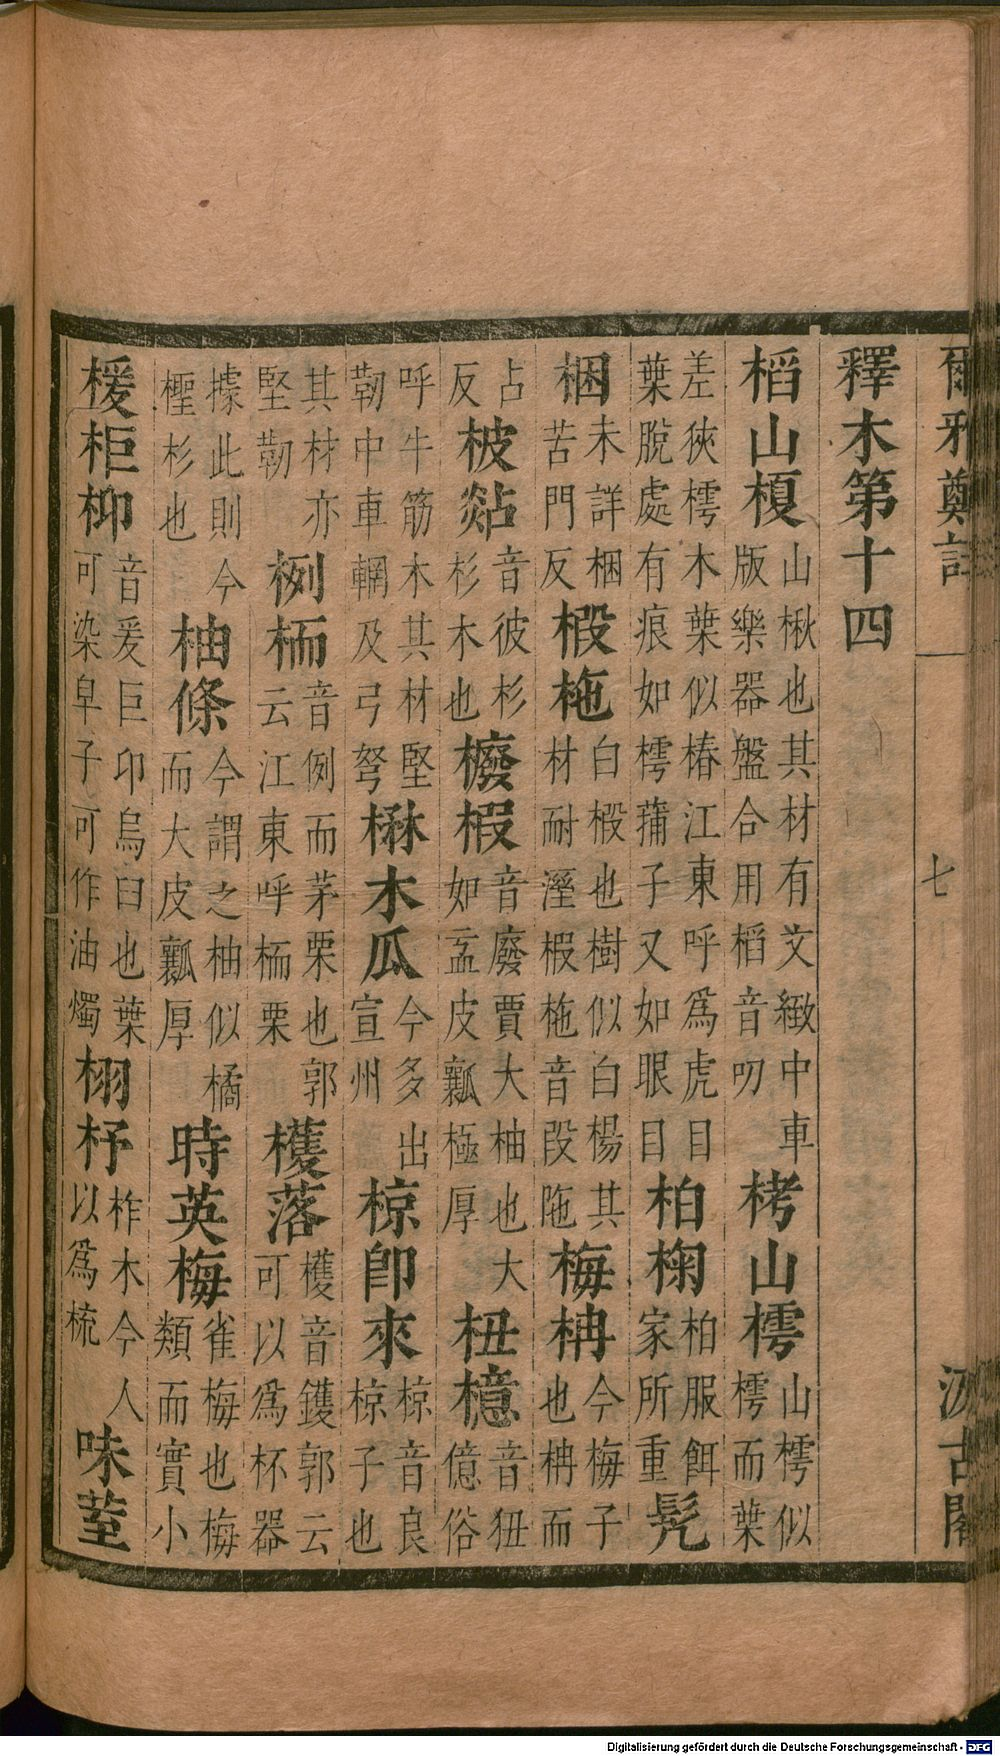 爾雅鄭註 七 汲古閣
釋木第十四
槄山榎山楸也其材有文緻中車版樂器盤合用槄音叨栲山樗山樗似樗而葉
差狹樗木葉似椿江東呼爲虎目葉脫處有痕如樗蒱子又如眼目柏椈柏服餌家所重髡
梱未詳梱苦門反椴柂白椴也樹似白楊其材耐溼椵柂音段陁梅柟今梅子也柟而
占反柀煔音彼杉杉木也櫠椵音廢賈大柚也大如盂皮瓤極厚杻檍音狃億俗
呼牛筋木其材堅韌中車輞及弓弩楙木瓜今多出宣州椋卽來椋音良椋子也
其材亦堅韌栵栭音例而茅栗也郭云江東呼栭栗檴落檴音鑊郭云可以爲杯器
據此則今檉杉也柚條今謂之柚似橘而大皮瓤厚時英梅雀梅也梅類而實小
楥柜枊音爰巨卬烏臼也葉可染皁子可作油燭栩杼柞木今人以爲梳味荎
Digitalisierung gefördert durch die Deutsche Forschungsgemeinschaft - DFG